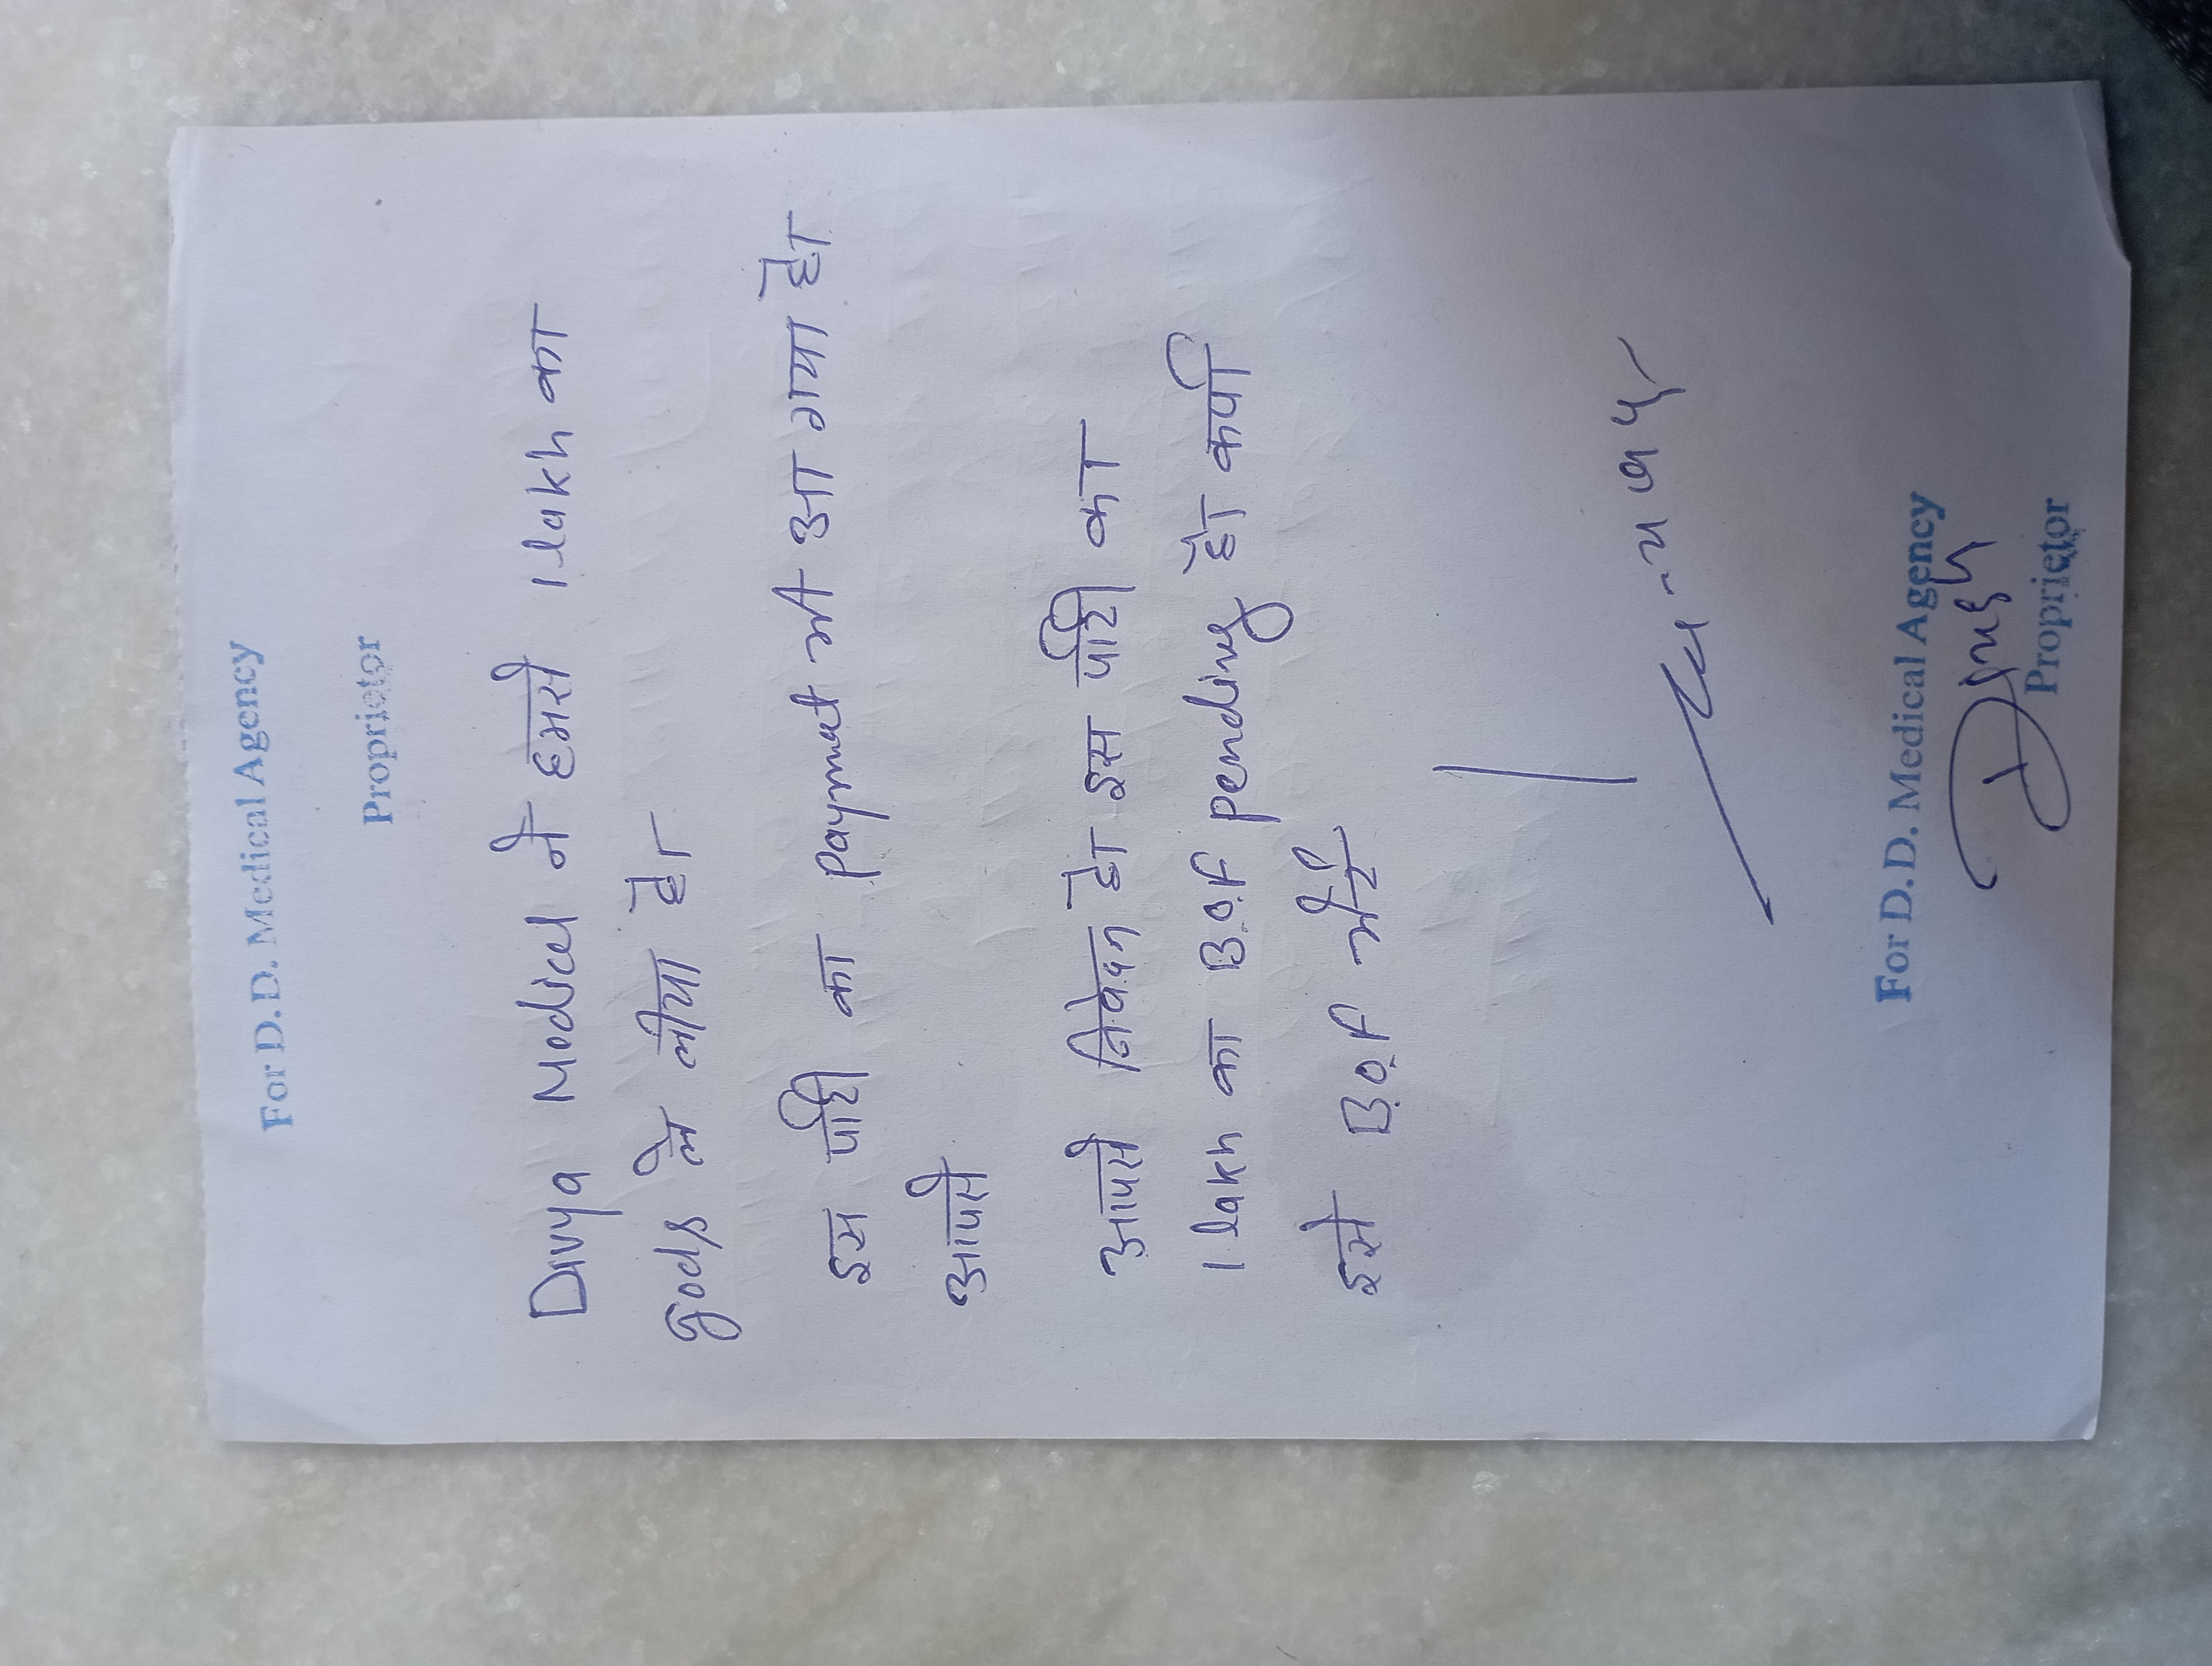 For D.D. Medical Agency
Proprietor
Divya Medical ने हमसे 1 lakh का
goods ले लीया है।
इस पार्टी का Paymnet आ गया है।
आपसे
आपसे निवेदन है। इस पार्टी का
1 lakh का B.O.F pending है। कपी
इसे B.O.F
धन्यवाद
For D.D. Medical Agency
Proprietor